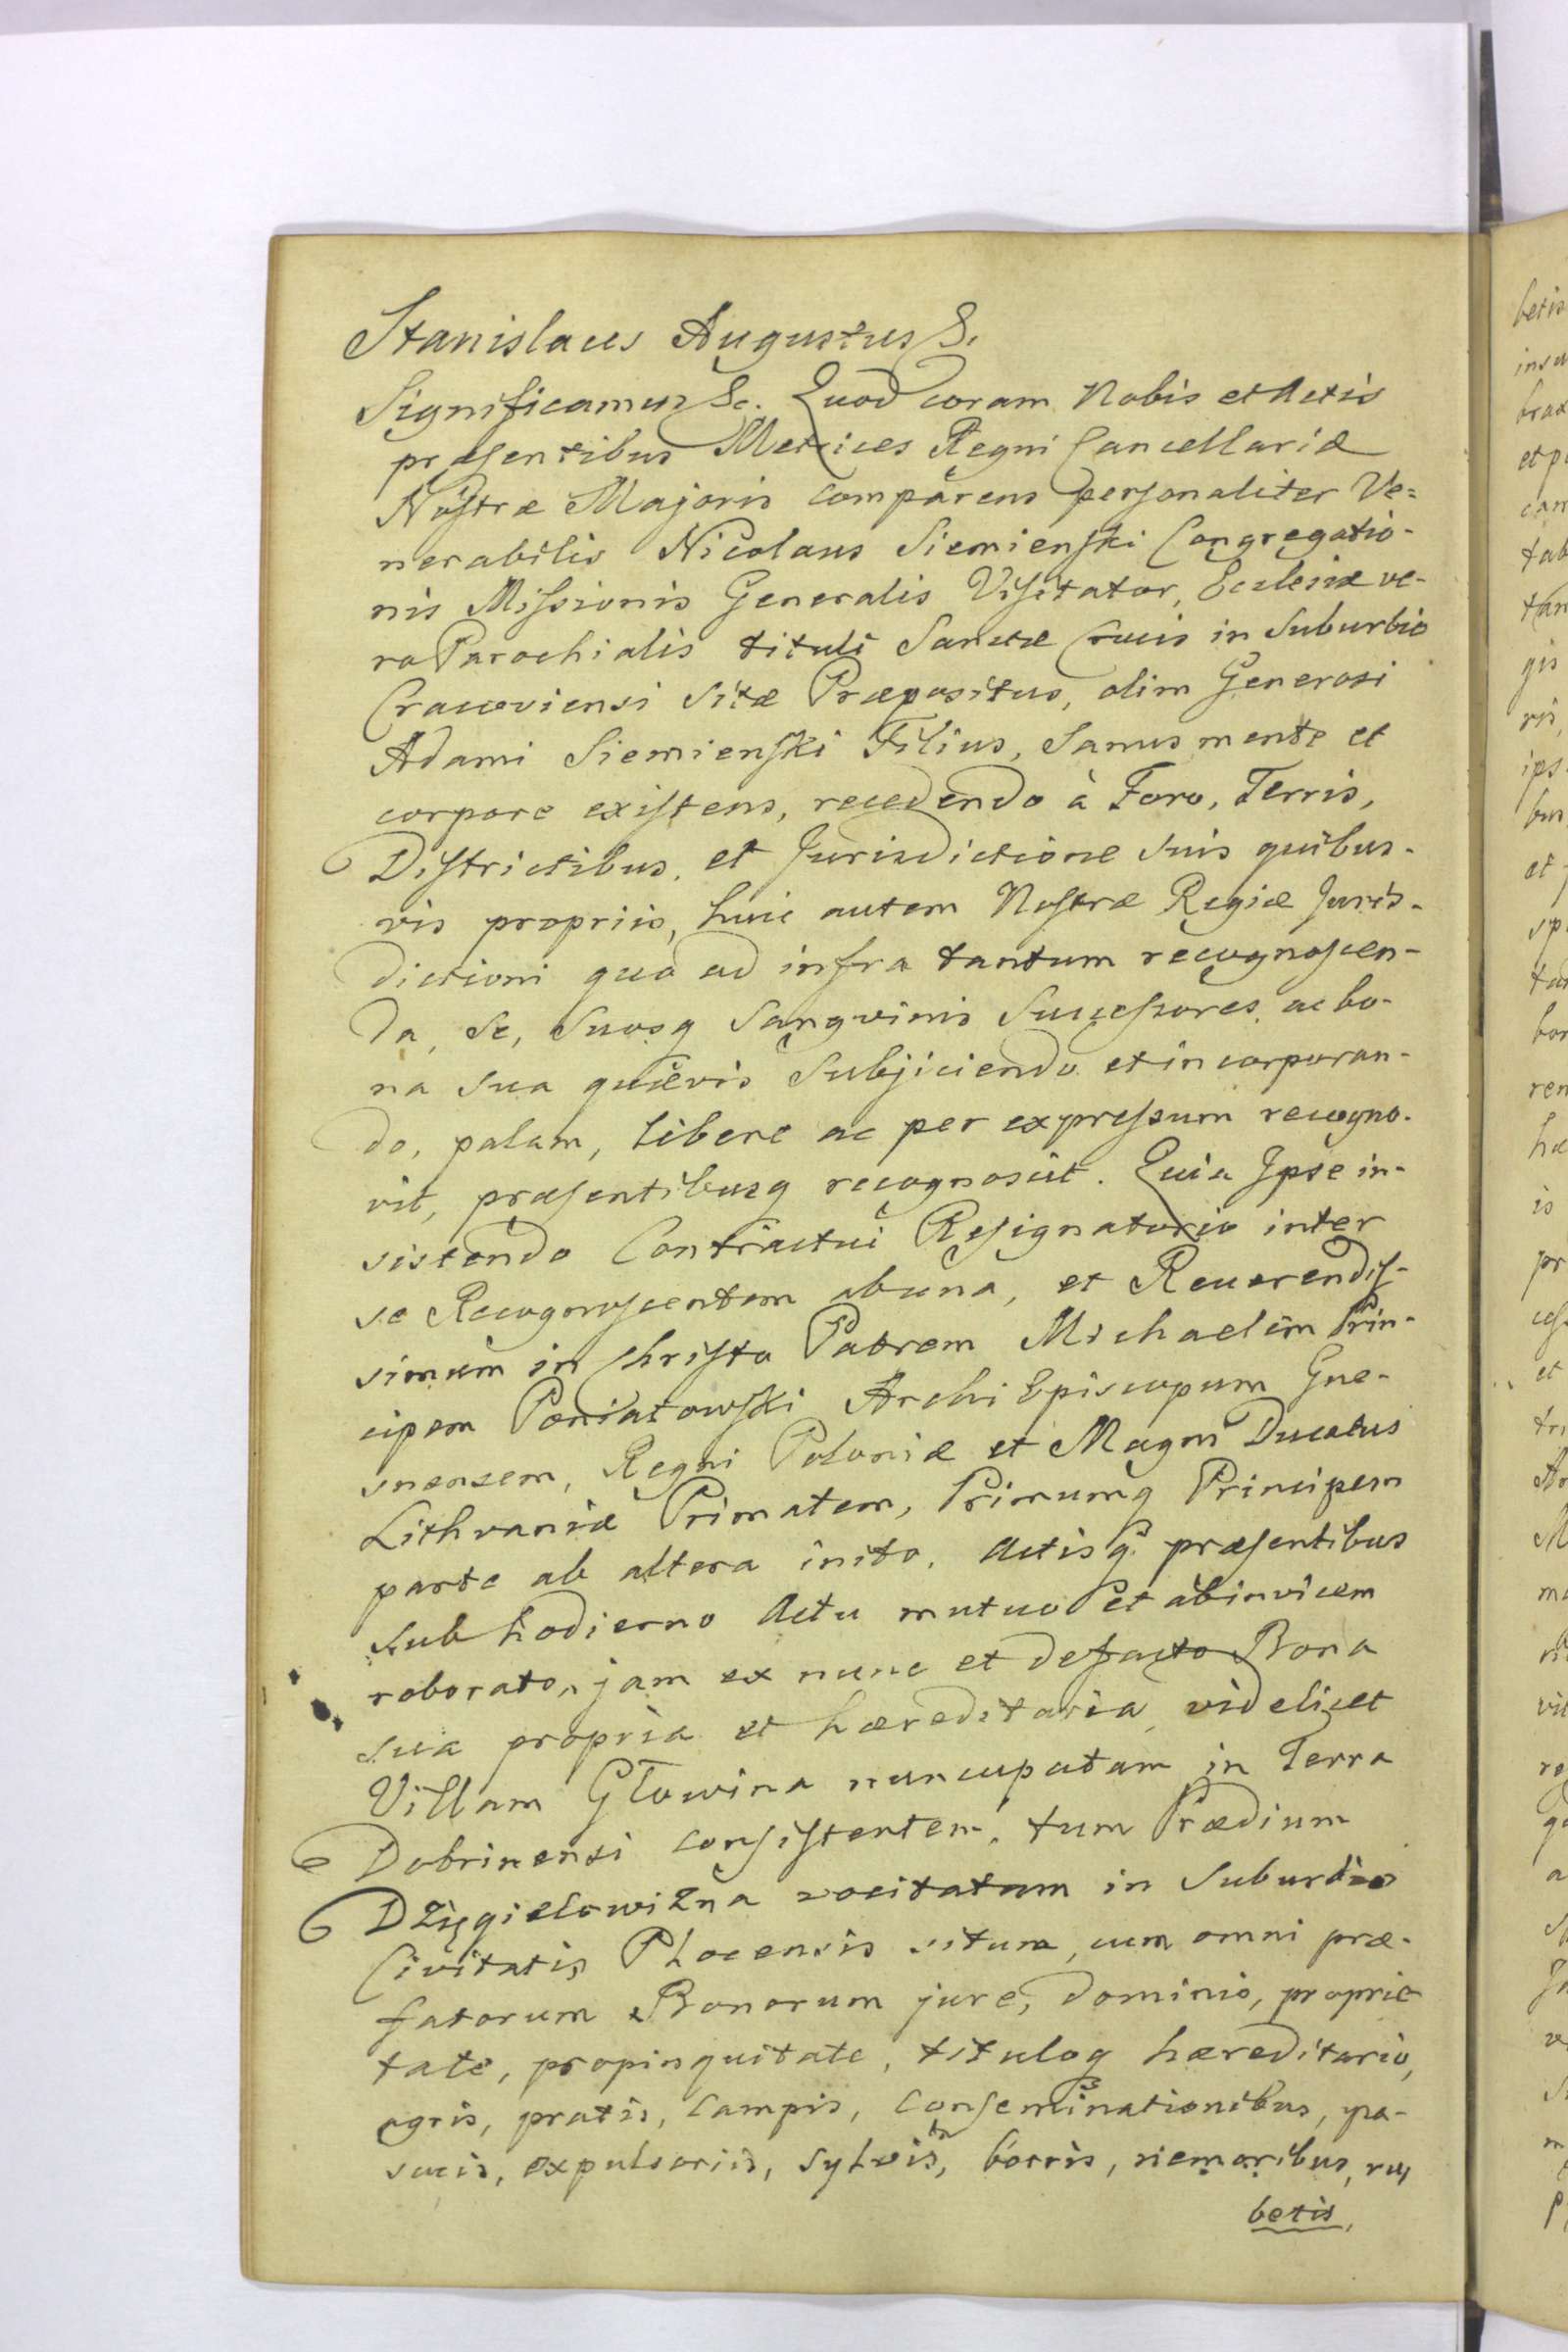 Stanislaus Augustus &.
Significamus &c. Quod coram Nobis et Actis
præsentibus Metrices Regni Cancellariæ
Nostræ Majoris comparens personaliter Ve=
nerabilis Nicolaus Siemienski Congregatio-
nis Missionis Generalis Visitator, Ecclesiæ ve-
ro Parochialis tituli Sanctæ Crucis in Suburbio
Cracoviensi sitæ Præpositus, olim Generosi
Adami Siemienski Filius, Sanus mente et
corpore existens, recedendo à Foro, Terris,
Districtibus, et Jurisdictione suis quibus-
vis propriis, huic autem Nostræ Regiæ Juris-
dictioni quo ad infra tantum recognoscen-
da, se, Suosq Sangvinis Successores, ac bo-
na sua quævis Subjiciendo et incorporan-
do, palam, libere ac per expressum recogno-
vit, præsentibusq recognoscit. Quia Ipse in-
sistendo Contractui Resignatorio inter
se Recognoscentem ab una, et Reuerendis-
simum in Christo Patrem Michaelem Prin-
cipem Poniatowski Archi Episcopum Gne-
snensem, Regni Poloniæ et Magni Ducatus
Lithvaniæ Primatem, Primumq Principem
parte ab altera inito, Actisq præsentibus
sub hodierno Actu mutuo et abinvicem
roborato, jam ex nunc et defacto Bona
sua propria et hæreditaria, videlicet
Villam Głowina nuncupatam in Terra
Dobrinensi consistentem, tum Prædium
Dzięgielowizna vocitatum in Suburbio
Civitatis Plocensis situm, cum omni præ-
fatorum Bonorum jure, dominio, proprie
tate, propinquitate, tituloq hæreditario,
agris, pratis, campis, conseminationibus, pa-
scuis, expulsoriis, sylvis, borris, nemoribus, ru,
betis,
betis
et
is